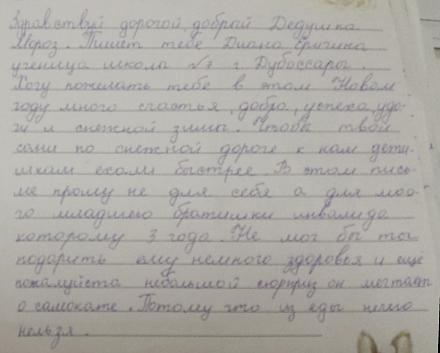 Здравствуй дорогой, добрый Дедушка
Мороз. Пишет тебе Диана
ученица школы №7 г Дубоссары.
Хочу пожелать тебе в этом Новом
году много счастья, добра, успеха, уда-
чи и снежной зимы. Чтобы твои
сани по снежной дороге к нам дети-
шкам ехали быстрее. В этом пись-
ме прошу не для себя а для мое-
го младшего братишки инвалида
которому 3 года. Не мог бы ты
подарить ему немного здоровья и ещё
пожалуйста небольшой сюрприз он мечтает
о самокате. Потому что из еды ничего
нельзя.